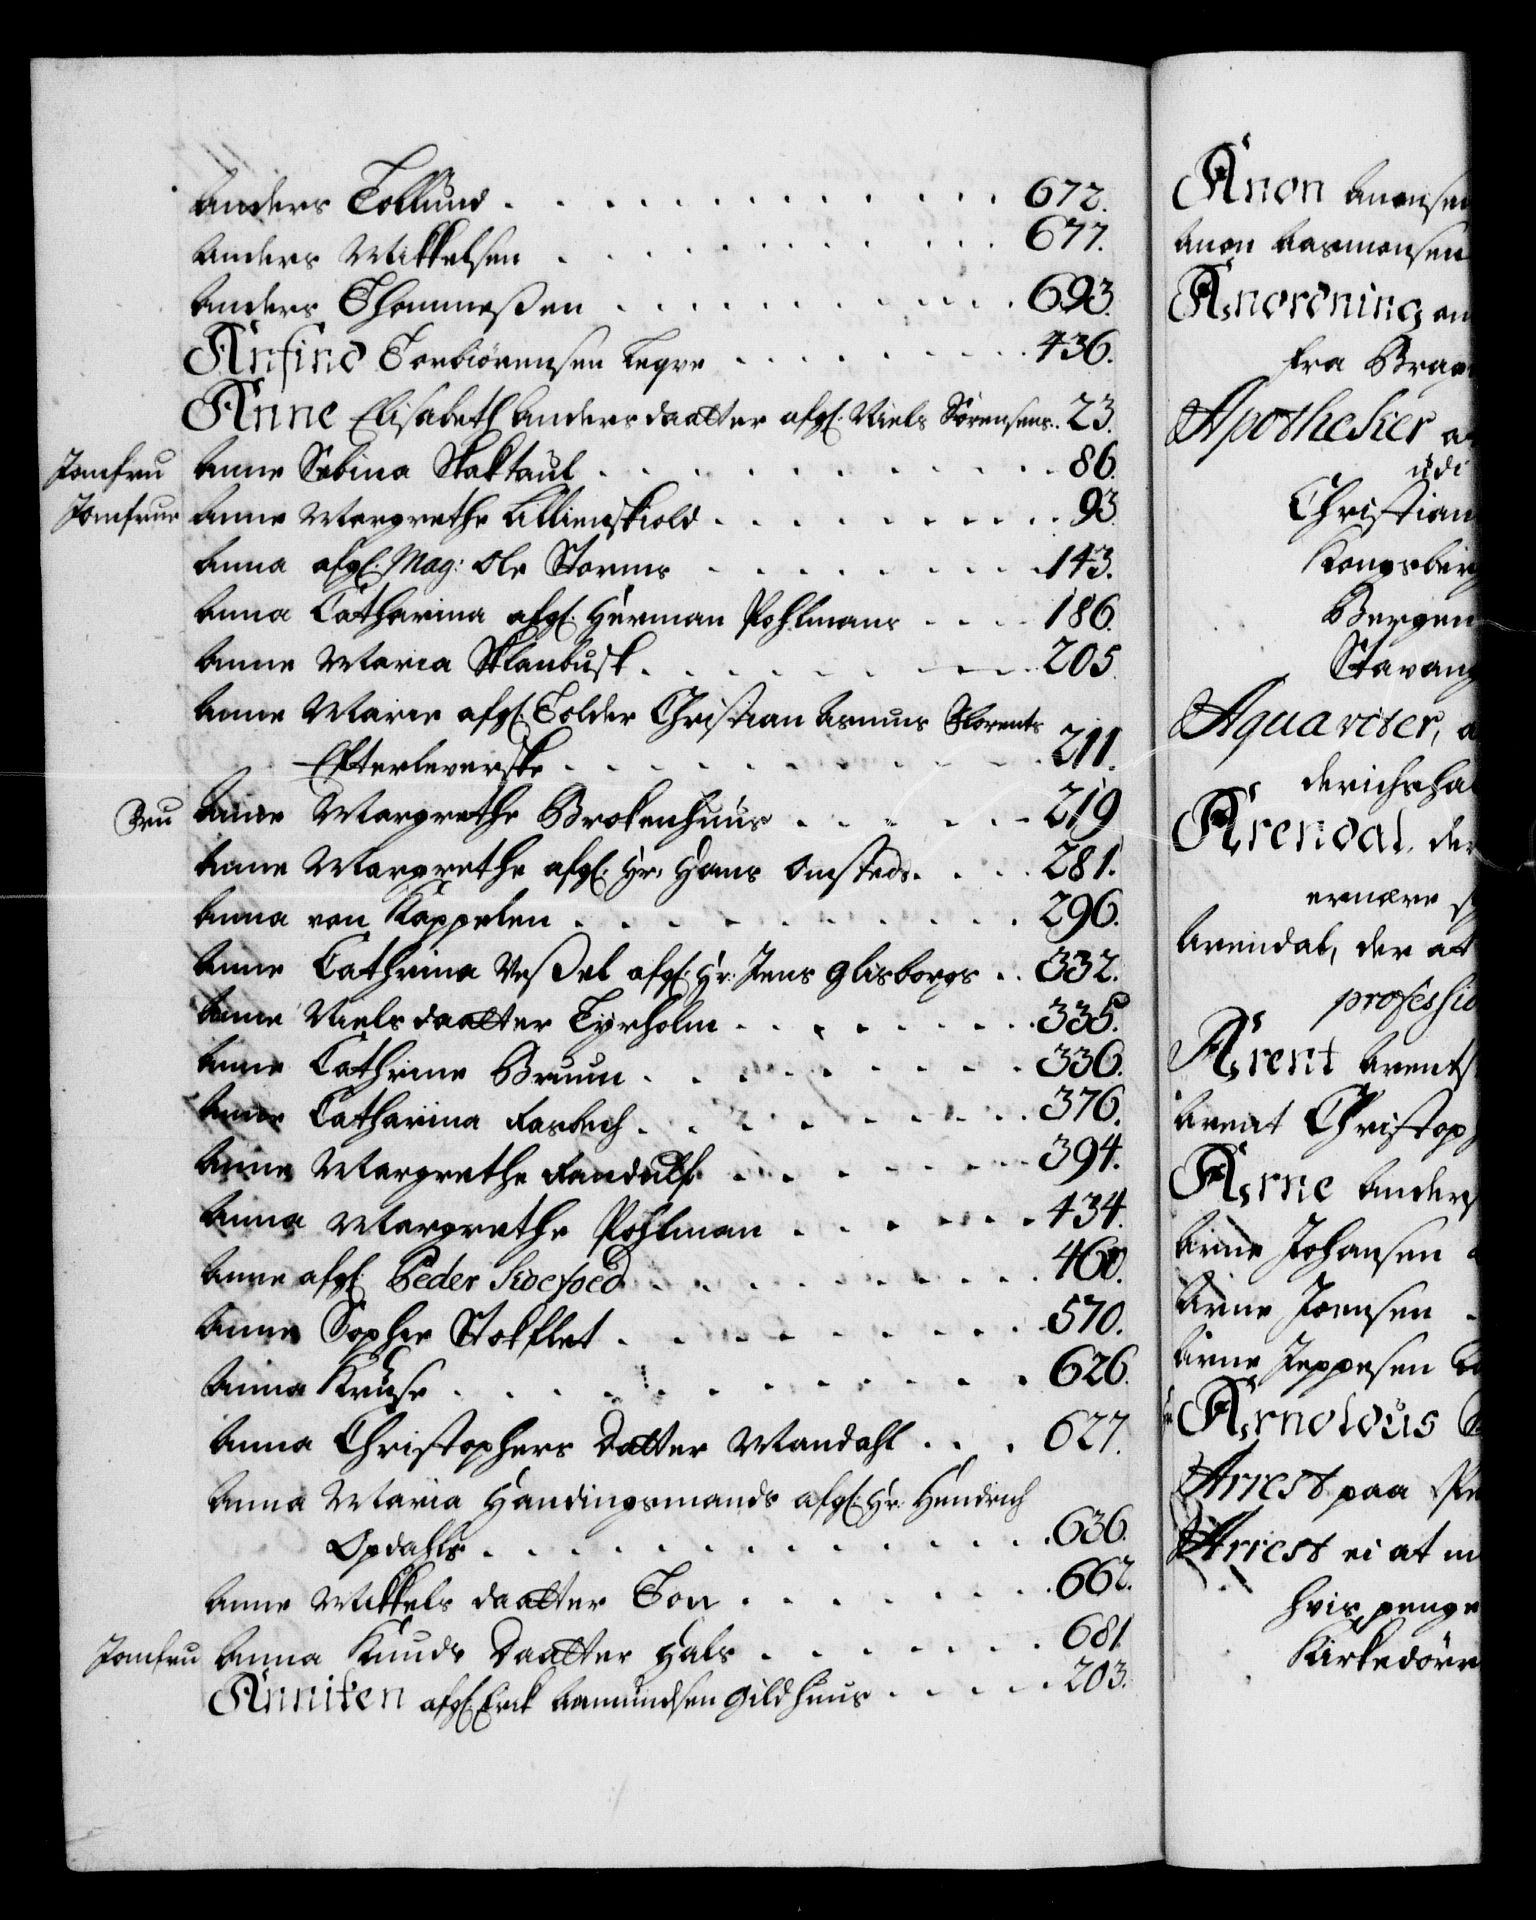 Anders Tollund . . . 672.
Anders Mikkelsen . . . 677.
Anders Thommeßen . . . 693.
Anfind Torbiörensen Legre . . . 436.
Anne Elisabeth Andersdaatter afgl. Niels Sörensens . . 23.
Jomfru Anne Sabina Staktaul . . . 86.
Jomfrue Anne Margrethe Lillienskiold . . . 93.
Anna afgl. Mag: Ole Storms . . . 143.
Anna Catharina afgl. Herman Pohlmans . . . 186.
Anne Maria Sklanbusk . . . 205.
Anne Marie afgl. Tolder Christian Asmus Florents
Efterleverske . . . 211.
Fru Anne Margrethe Brokenhuus . . . 219
Anne Margrethe afgl. Hr. Hans Omsteds . . . 281.
Anna von Kappelen . . . 296.
Anne Cathrina Weßel afgl. Hr. Jens Glisborgs . . 332.
Anne Nielsdaatter Tyrholm . . . 335.
Anne Cathrine Bruun . . . 336.
Anne Catharina Farbech . . . 376.
Anne Margrethe Randulf . . . 394.
Anna Margrethe Pohlman . . . 434.
Anne afgl. Peder . . . 460.
Anne Sophie Stokflet . . . 570.
Anna Kruse . . . 626.
Anna Christophers Datter Mandahl . . . 627.
Anna Maria Handingsmands afgl. Hr. Hendrich
Opdahls . . . 636.
Anne Mikkels daatter Ton . . . 662.
Jomfru Anna Knuds Daatter Hals . . . 681.
Anniken afgl. Erik Aamundsen Gildhuus . . . 203.
Anon Anonsen
Anon Aasmonsen
Anordning an
fra Brag
Apotheker at
udi
Christian
Kongsberg
Bergen
Stavang
Aquaviter, a
derichshal
Arendal, der
ernære s
Arendal, der at
professio
Arent Arents
Arent Christop
Arne Anders
Arne Johansen
Arne Joensen
Arne Jeppesen
Arnoldus
Arrest paa
Arrest ei at
hvis penge
Kirkedörr